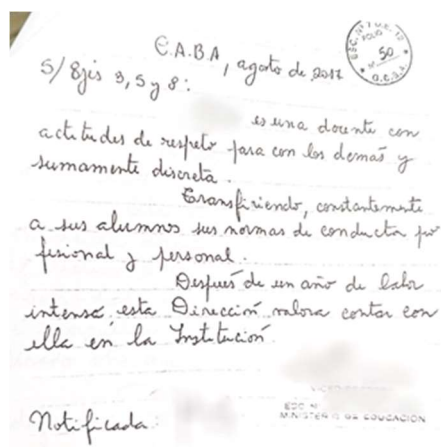 C.A.B.A, agosto de 2017
ESC. Nº 7 D.E. 12
FOLIO
Nº 50
G.C.B.A.
S/ Ejes 3, 5 y 8:
es una docente con
actitudes de respeto para con los demás y
sumamente discreta.
Transfiriendo, constantemente
a sus alumnos sus normas de conducta pro
fesional y personal.
Después de un año de labor
intensa, esta Dirección valora contar con
ella en la Institución.
ESC Nº
MINISTERIO DE EDUCACIÓN
Notificada: